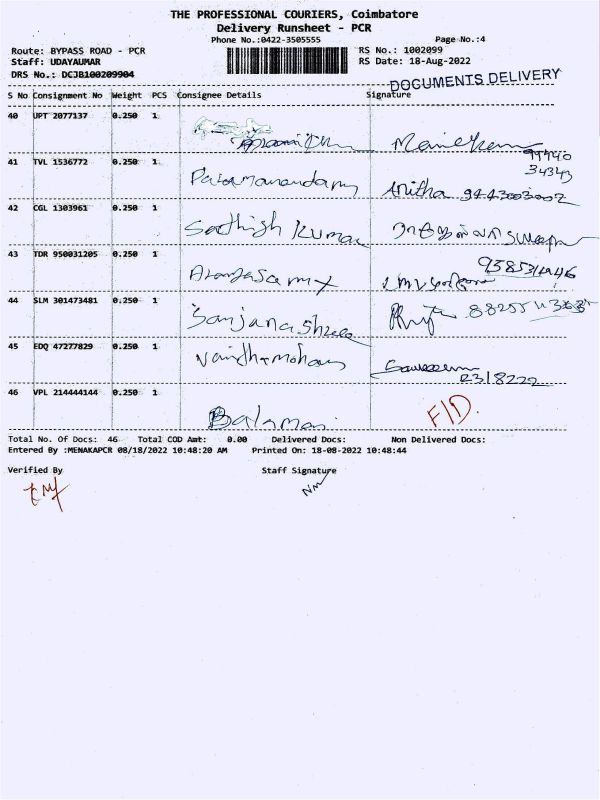 THE PROFESSIONAL COURIERS, Coimbatore
Delivery Runsheet - PCR
Phone No.:0422-3505555 Page No.:4
Route: BYPASS ROAD - PCR RS No.: 1002099
Staff: UDAYAUMAR RS Date: 18-Aug-2022
DRS No.: DCJB100209904
DOCUMENTS DELIVERY
S No Consignment No Weight PCS Consignee Details Signature
40 UPT 2077137 0.250 1
99940
34343
41 TVL 1536772 0.250 1
Paramanandam Anitha 9443003002
42 CGL 1303961 0.250 1
Sathish Kumar
43 TDR 950031205 0.250 1
44 SLM 301473481 0.250 1
Sanjanashree
45 EDQ 47277829 0.250 1
46 VPL 214444144 0.250 1
Balamani F/D.
Total No. Of Docs: 46 Total COD Amt: 0.00 Delivered Docs: Non Delivered Docs:
Entered By :MENAKAPCR 08/18/2022 10:48:20 AM Printed On: 18-08-2022 10:48:44
Verified By Staff Signature